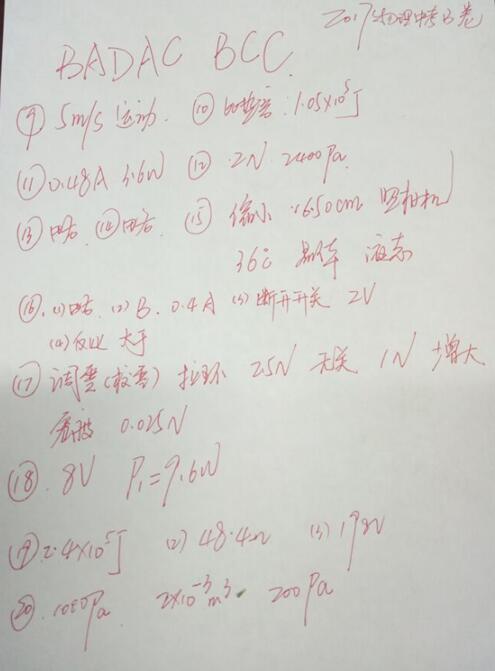 2017物理中考B卷
BADAC BCC
⑨ 5m/s 运动. ⑩ 1.05×10⁵J
⑪ 0.48A 3.6W ⑫ 2N 2400Pa
⑬ 略. ⑭ 略. ⑮ 缩小 16.50cm 照相机
36℃ 晶体 液态
⑯. (1)略 (2) B. 0.4A (3) 断开开关 2V
(4) 大于
⑰ 调零(校零) 拉环 2.5N 无关 1N 增大
0.025N
⑱. 8V P₁=9.6W
⑲ 2.4×10⁵J (2) 48.4Ω (3)
⑳. 1000Pa. 2×10⁻³m³. 200Pa